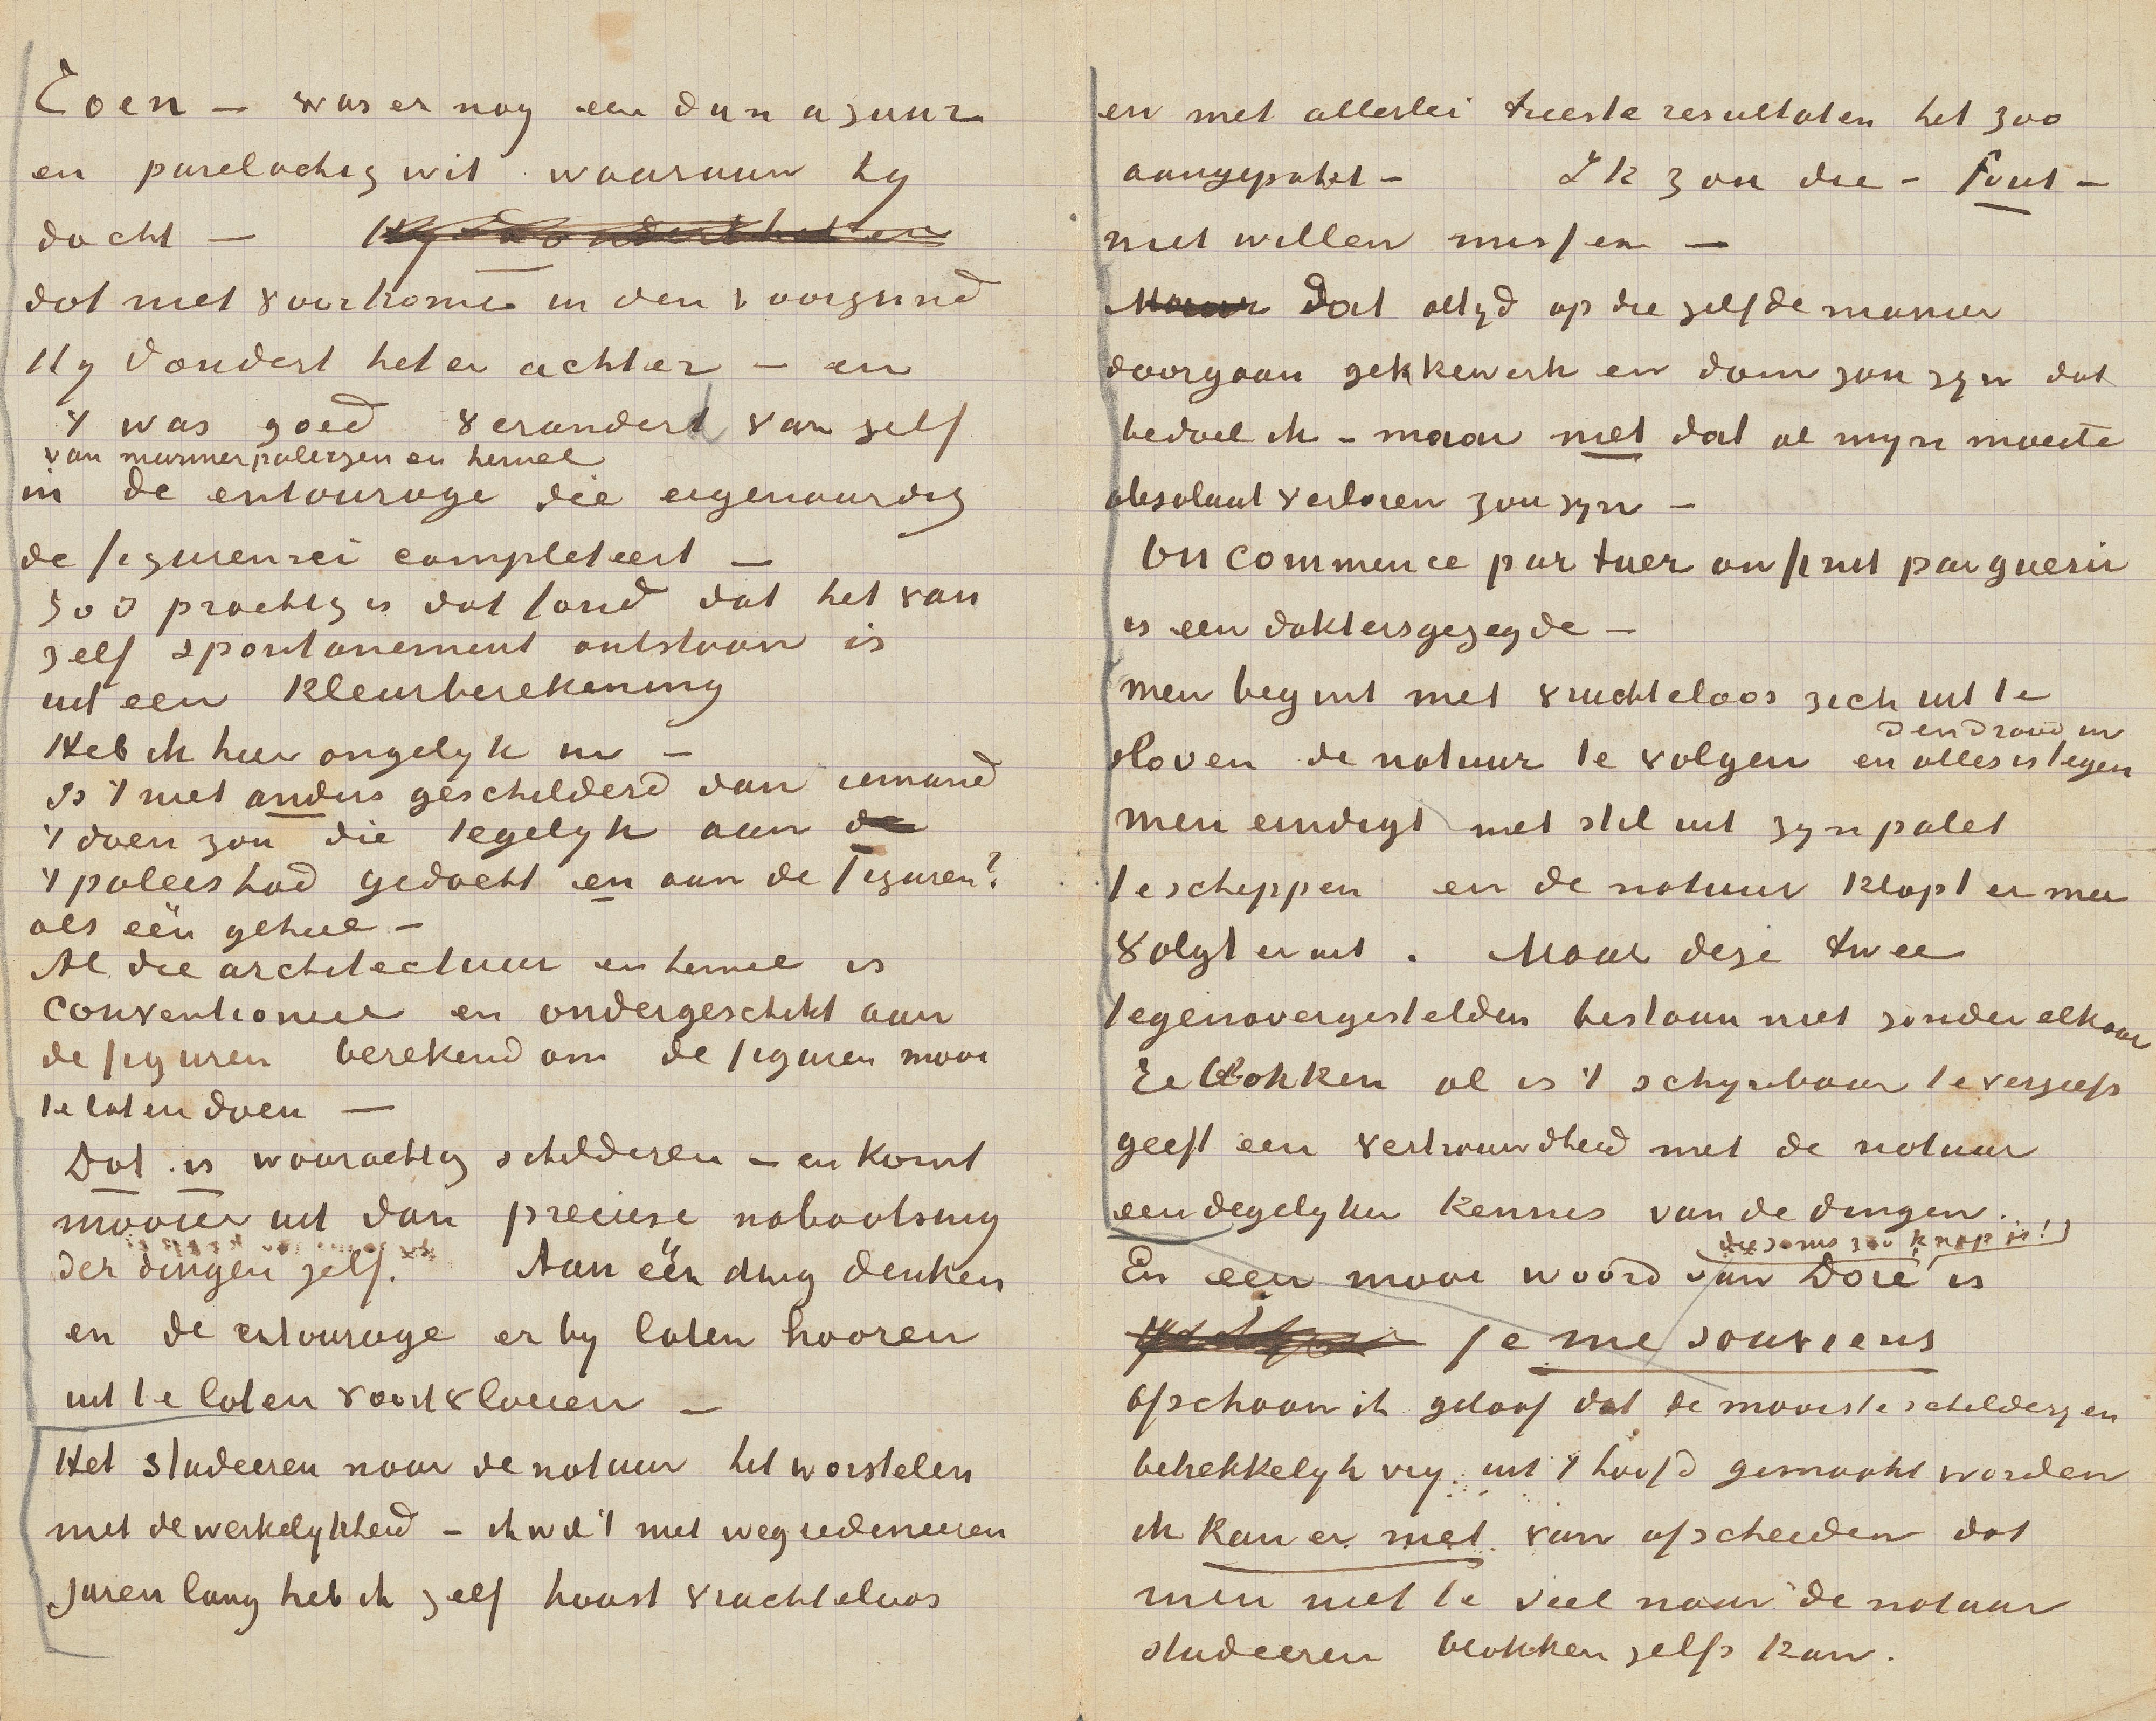 Toen — was er nog een dun azuur
en parelachtig wit waaraan hy
dacht —
dat niet voorkome in den voorgrond
Hy dondert het er achter — en
't was goed verandert van zelf
van marmerpaleizen en hemel
in de entourage die eigenaardig
de figurenrei completeert —
zoo prachtig is dat fond dat het van
zelf spontanement ontstaan is
uit een kleurberekening
Heb ik hier ongelyk in —
Is 't niet anders geschilderd dan iemand
't doen zou die tegelyk aan de
't paleis had gedacht en aan de figuren?
als één geheel —
Al die architectuur en hemel is
conventioneel en ondergeschikt aan
de figuren berekend om de figuren mooi
te laten doen —
Dat is waarachtig schilderen — en komt
mooier uit dan preciese nabootsing
der dingen zelf. Aan één ding denken
en de entourage er by laten hooren
uit te laten voortvloeien —
Het studeeren naar de natuur het worstelen
met de werkelykheid — ik wil 't niet wegredeneeren
Jaren lang heb ik zelf haast vruchteloos
en met allerlei trieste resultaten het zoo
aangepakt — Ik zou die — fout —
niet willen missen —
Maar Dat altyd op die zelfde manier
doorgaan gekkewerk en dom zou zyn dat
bedoel ik — maar niet dat al myn moeite
absoluut verloren zou zyn —
On commence par tuer on finit par guerir
is een doktersgezegde —
men begint met vruchteloos zich uit te
sloven de natuur te volgen en alles is tegen
den draad in
men eindigt met stil uit zyn palet
te scheppen en de natuur klopt er mee
volgt er uit. Maar deze twee
tegenovergestelden bestaan niet zonder elkaar
Het blokken al is 't schynbaar te vergeefs
geeft een vertrouwdheid met de natuur
een degelyker kennis van de dingen.
die soms zoo knap is!)
En een mooi woord van Doré is
je me souviens
Ofschoon ik geloof dat de mooiste schilderyen
betrekkelyk vry uit 't hoofd gemaakt worden
ik kan er niet van afscheiden dat
men niet te veel naar de natuur
studeeren blokken zelfs kan.